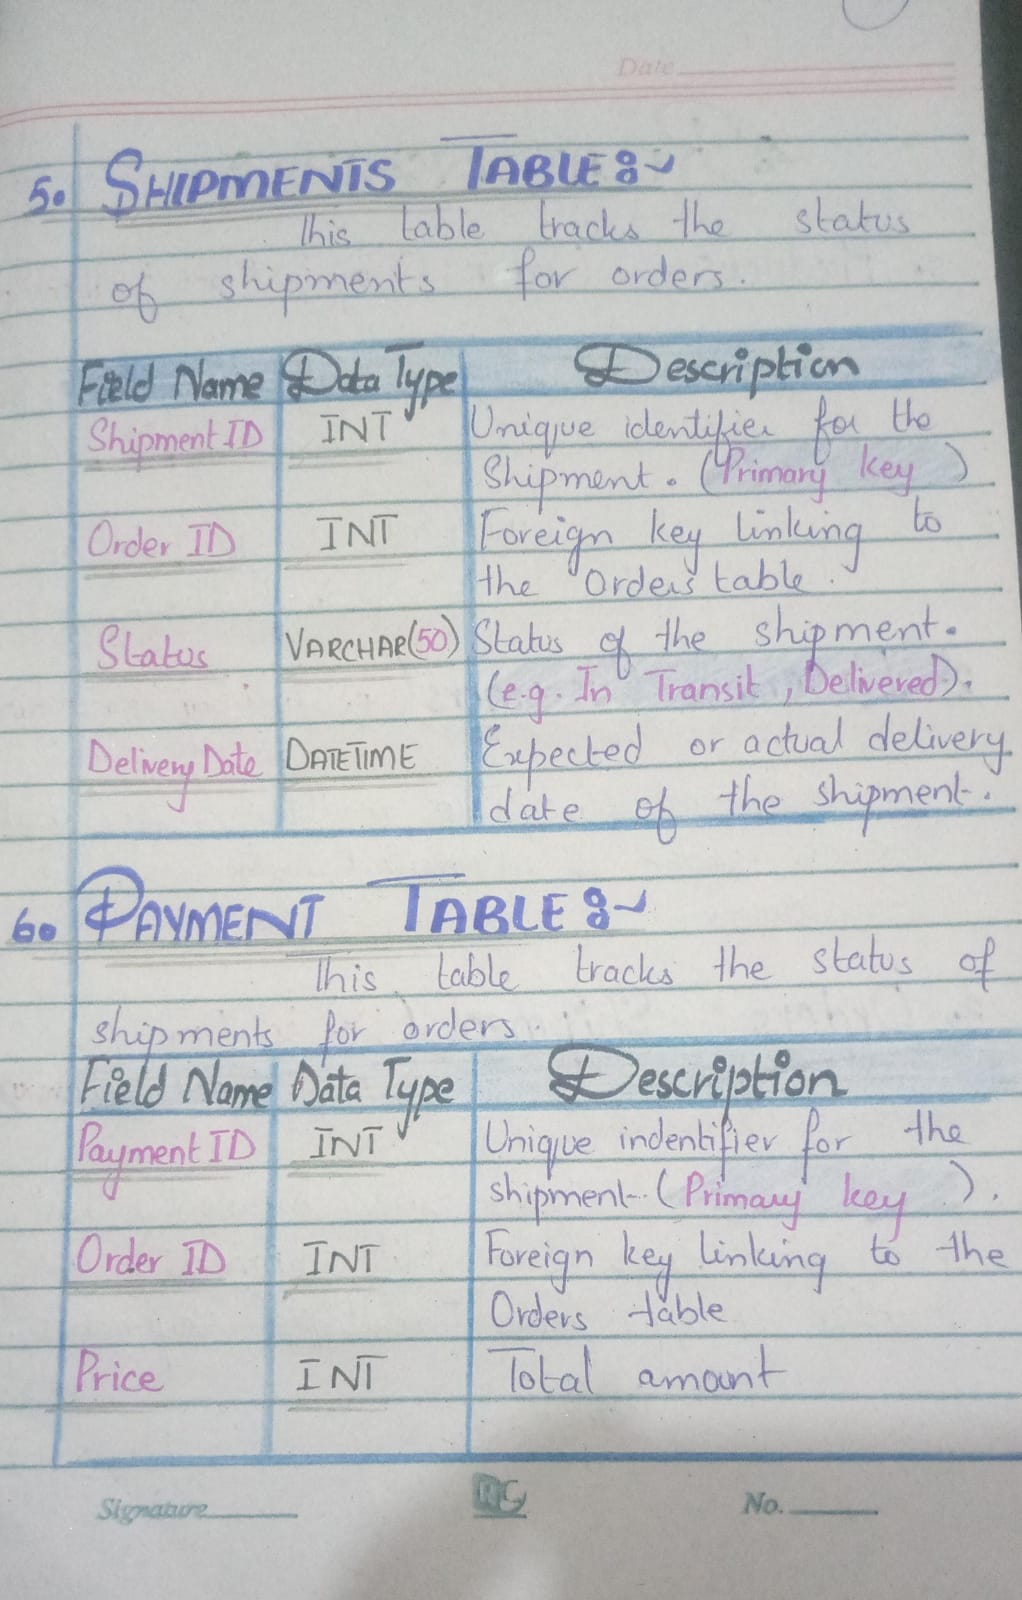 Date
5. SHIPMENTS TABLE :~
This table tracks the status
of shipments for orders.
Field Name Data Type Description
Shipment ID INT Unique identifier for the
Shipment. (Primary key)
Order ID INT Foreign key linking to
the Orders table.
Status VARCHAR(50) Status of the shipment.
(e.g. In Transit, Delivered).
Delivery Date DATETIME Expected or actual delivery
date of the shipment.
6. PAYMENT TABLE :~
This table tracks the status of
shipments for orders.
Field Name Data Type Description
Payment ID INT Unique indentifier for the
shipment. (Primary key).
Order ID INT Foreign key linking to the
Orders table
Price INT Total amount
Signature RG No.